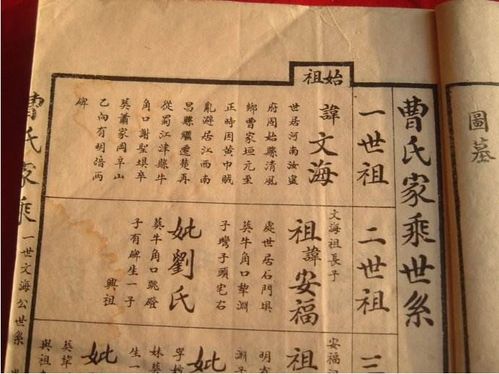 圖墓
曹氏家乘世系
始祖
一世祖
諱文海
世居河南汝寧
府固始縣清風
鄉曹家垣元至
正時因黃巾賊
亂避居江西南
昌縣繼遷楚再
從蜀江津縣牛
角口謝聖垻卒
葬蕭家岡阜山
乙向有明碚兩
碑
二世祖
文海祖長子
祖諱安福
處世居石門垻
葬牛角口犂淵
子灣子頭宅右
妣劉氏
葬牛角口磴
子有碑生一子
興祖
三
安福
祖
妣
生一
妣
曹氏家乘
一世文海公世系